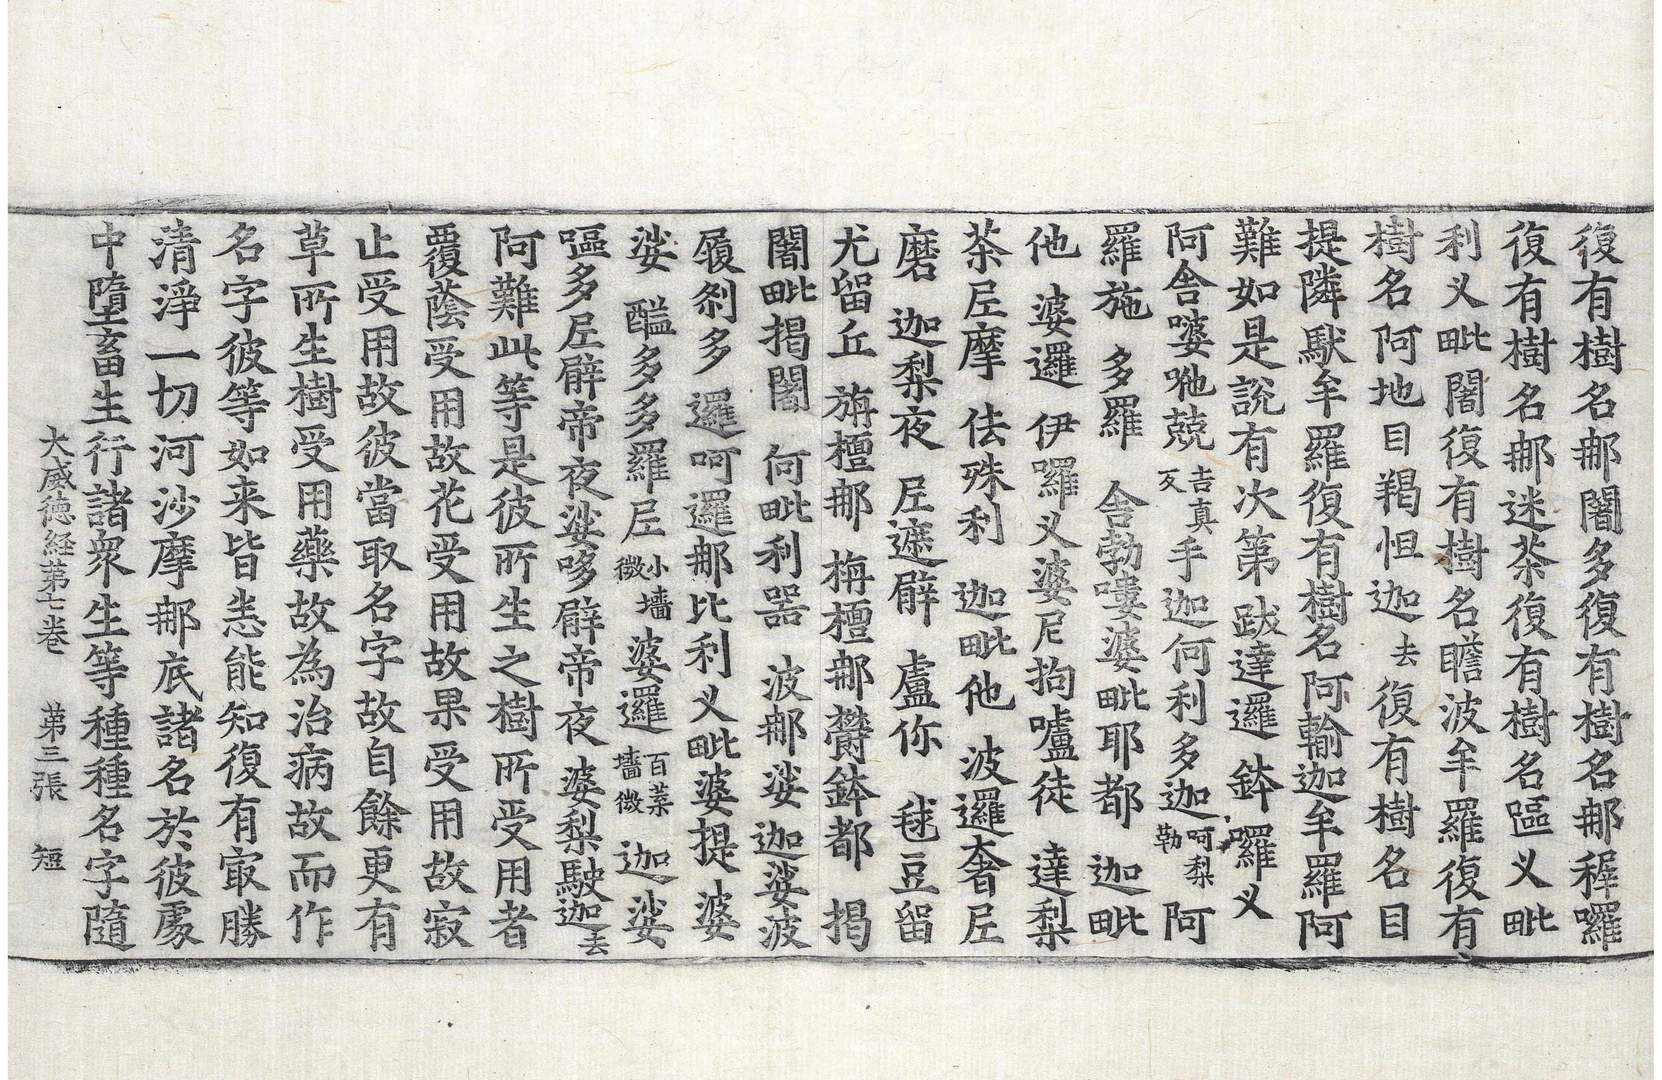 復有樹名那闍多復有樹名那稺囉
復有樹名那迷茶復有樹名區义毗
利义毗闍復有樹名瞻波牟羅復有
樹名阿地目羯怛迦去復有樹名目
提隣馱牟羅復有樹名阿輸迦牟羅阿
難如是說有次第 跋達邏 鉢囉义
阿舍婆吔兢吉真反手迦何利多迦呵梨勒阿
羅施 多羅 舍勃嘍婆毗耶都 迦毗
他 婆邏 伊囉义婆尼拘嚧徒 達梨
茶𡰱摩 佉殊利 迦毗他 波邏奢𡰱
磨 迦梨夜 𡰱遮辟 盧你 毬豆留
尤留丘 旃檀那 栴檀那欝鉢都 揭
闍毗揭闍 何毗利器 波那娑迦娑波
履剎多 邏呵邏那比利义毗婆提 婆
娑 醯多多羅𡰱小墻微婆邏百葉墻微 迦娑
嘔多𡰱辟帝夜娑哆辟帝夜 婆梨駛迦去
阿難此等是彼所生之樹所受用者
覆蔭受用故花受用故果受用故寂
止受用故彼當取名字故自餘更有
草所生樹受用藥故為治病故而作
名字彼等如来皆悉能知復有㝡勝
清淨一切河沙摩那底諸名於彼處
中墮畜生行諸衆生等種種名字隨
大威徳経苐七卷 苐三張 短